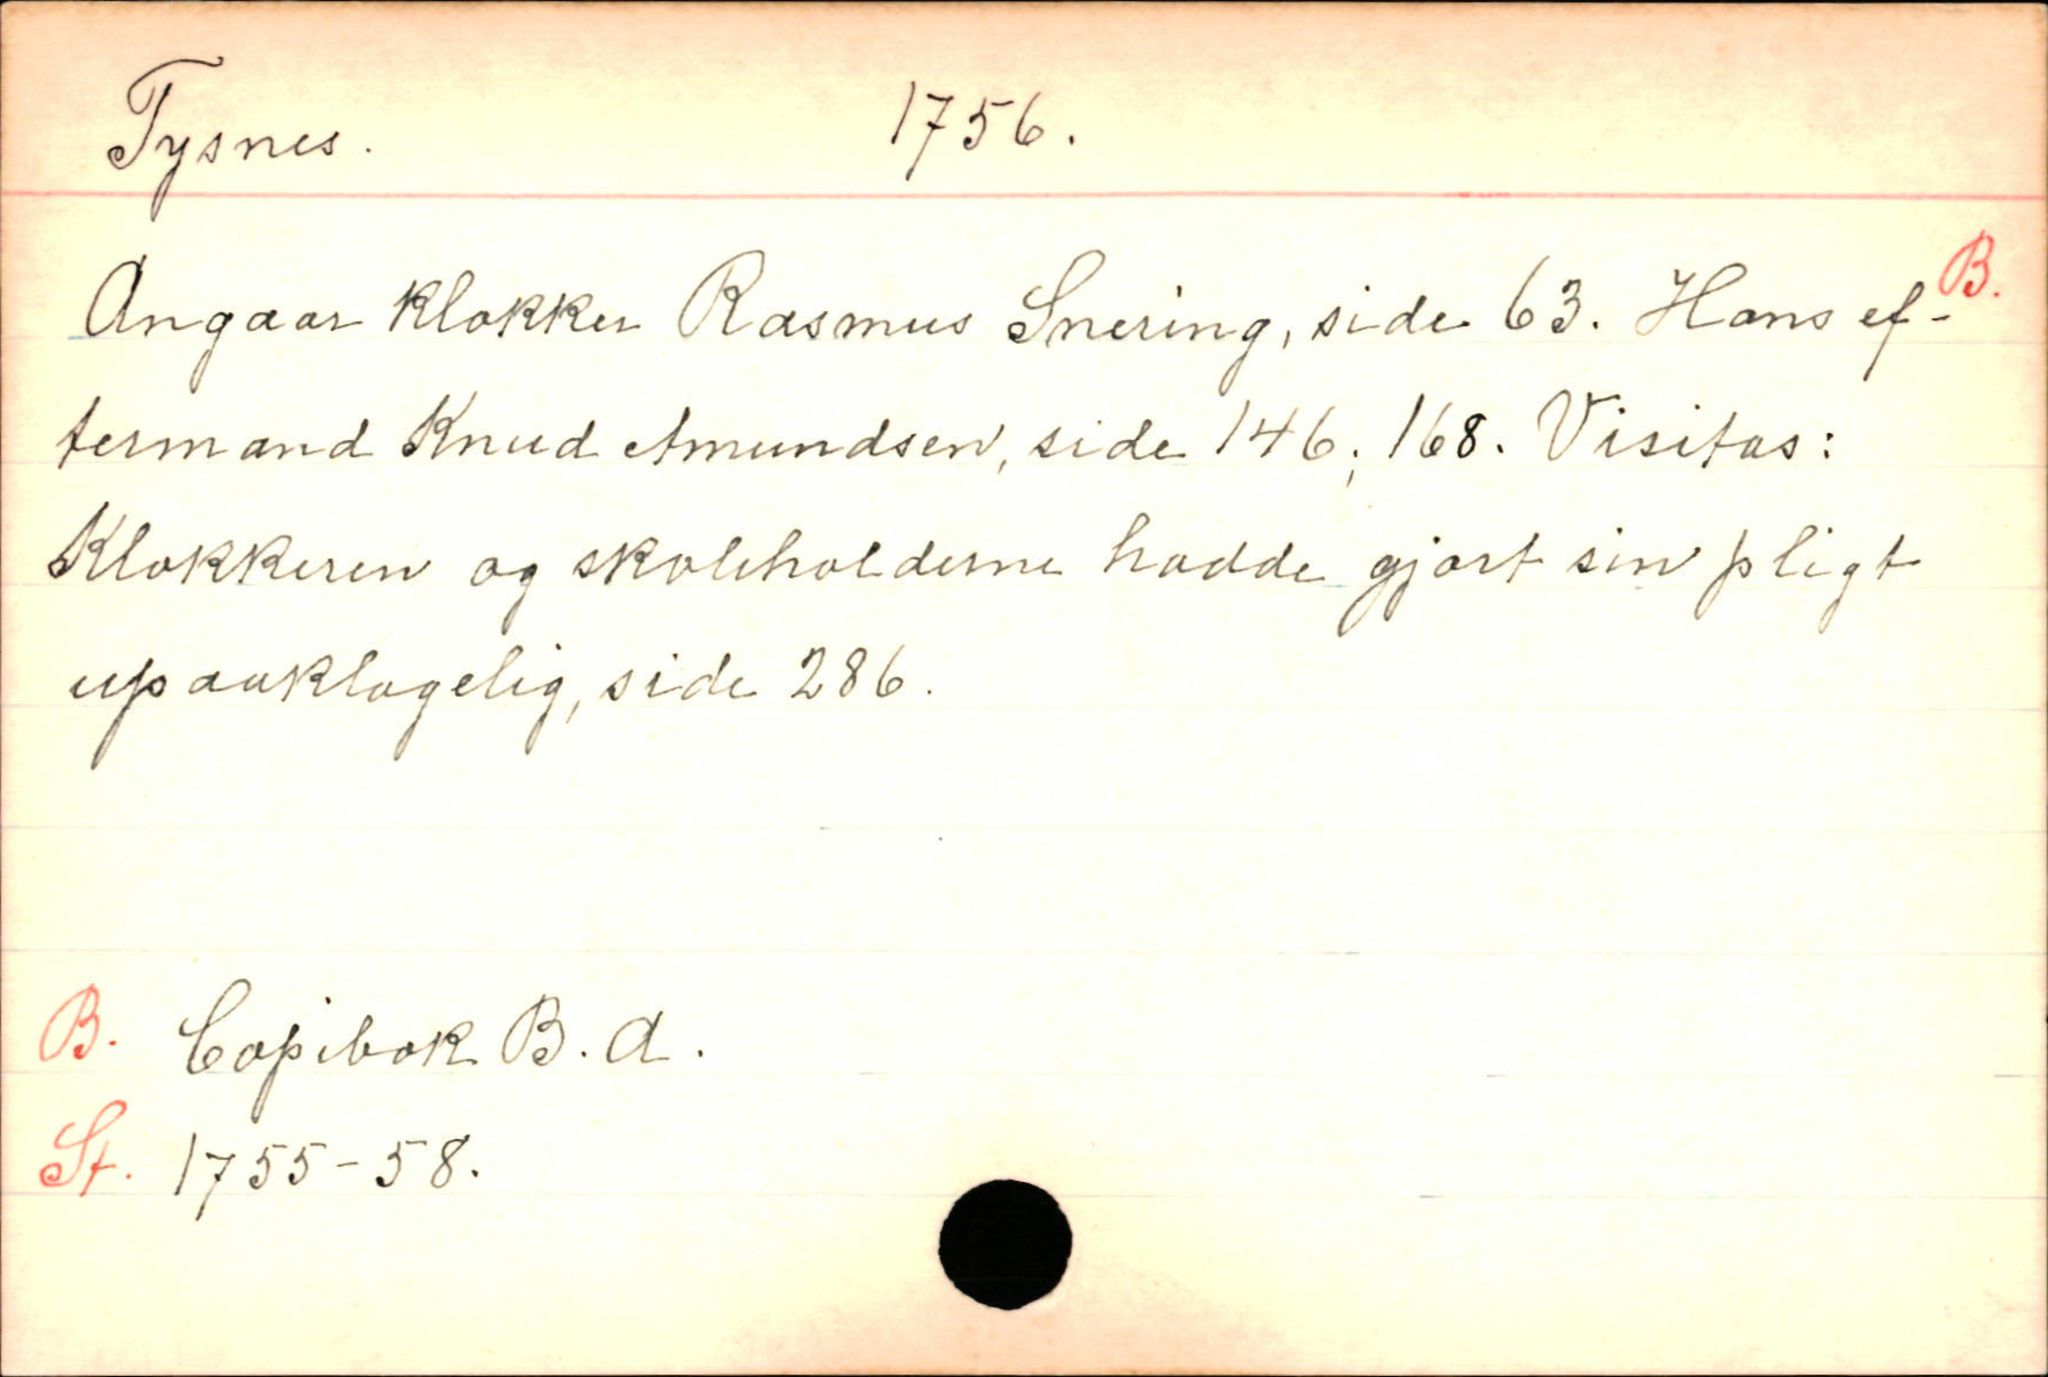 Tysnes. 1756.
Angaar klokker Rasmus Snering, side 63. Hans ef- B.
termand Knud Amundsen, side 146, 168. Visitas:
Klokkeren og skoleholderne hadde gjort sin pligt
upaaklagelig, side 286.
B. Copibok B. A.
St. 1755-58.